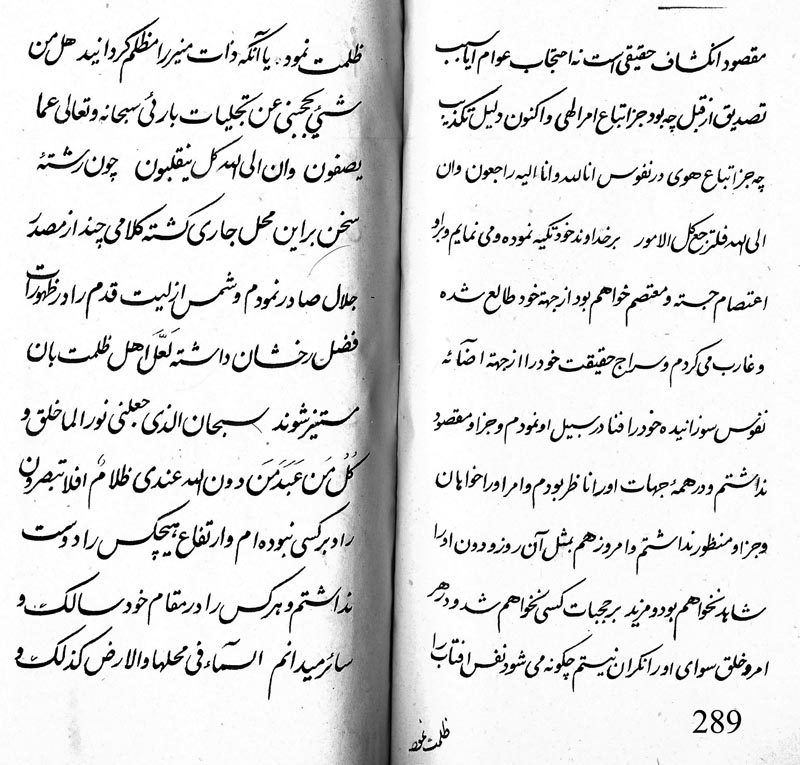 مقصود انکشاف حقیقی است نه احتجاب عوام ایا سبب
تصدیق از قبل چه بود جز اتباع امر الهی واکنون دلیل تکذیب
چه جز اتباع هوی در نفوس انا لله وانا الیه راجعون وان
الی الله فلترجع کل الامور بر خداوند خود تکیه نموده ومی نمایم وبر او
اعتصام جسته و معتصم خواهم بود از جهة خود طالع شده
و غارب می کردم وسراج حقیقت خود را از جهة اضآئه
نفوس سوزانیده خود را فنا در سبیل او نمودم وجز او مقصود
نداشتم ودر همهٔ جهات او را ناظر بودم وامر او را خواهان
وجز او منظور نداشتم وامروز هم بمثل آن روز و دون او را
شاهد نخواهم بود و مزید بر حجبات کسی نخواهم شد و در هر
امر وخلق سوای او را نکران نیستم چکونه می شود نفس افتاب را
ظلمت نمود
289
ظلمت نمود یا آنکه ذات منیر را مظلم کردانید هل من
شیئ یحجبنی عن تجلیات بارئی سبحانه وتعالی عما
یصفون وان الی الله کل ینقلبون چون رشتهٔ
سخن بر این محل جاری کشته کلامی چند از مصدر
جلال صادر نمودم وشمس ازلیت قدم را در ظهورات
فضل رخشان داشته لَعَلَّ اهل ظلمت بان
مستنیر شوند سبحان الذی جعلنی نورا لما خلق و
کُلُ مَن عَبَدَ مَن دون الله عندی ظلامٌ افلا تبصرون
راد بر کسی نبوده ام وارتفاع هیچکس را دوست
نداشتم وهر کس را در مقام خود سالک و
سائر میدانم السمآء فی محلها والارض کذلک و